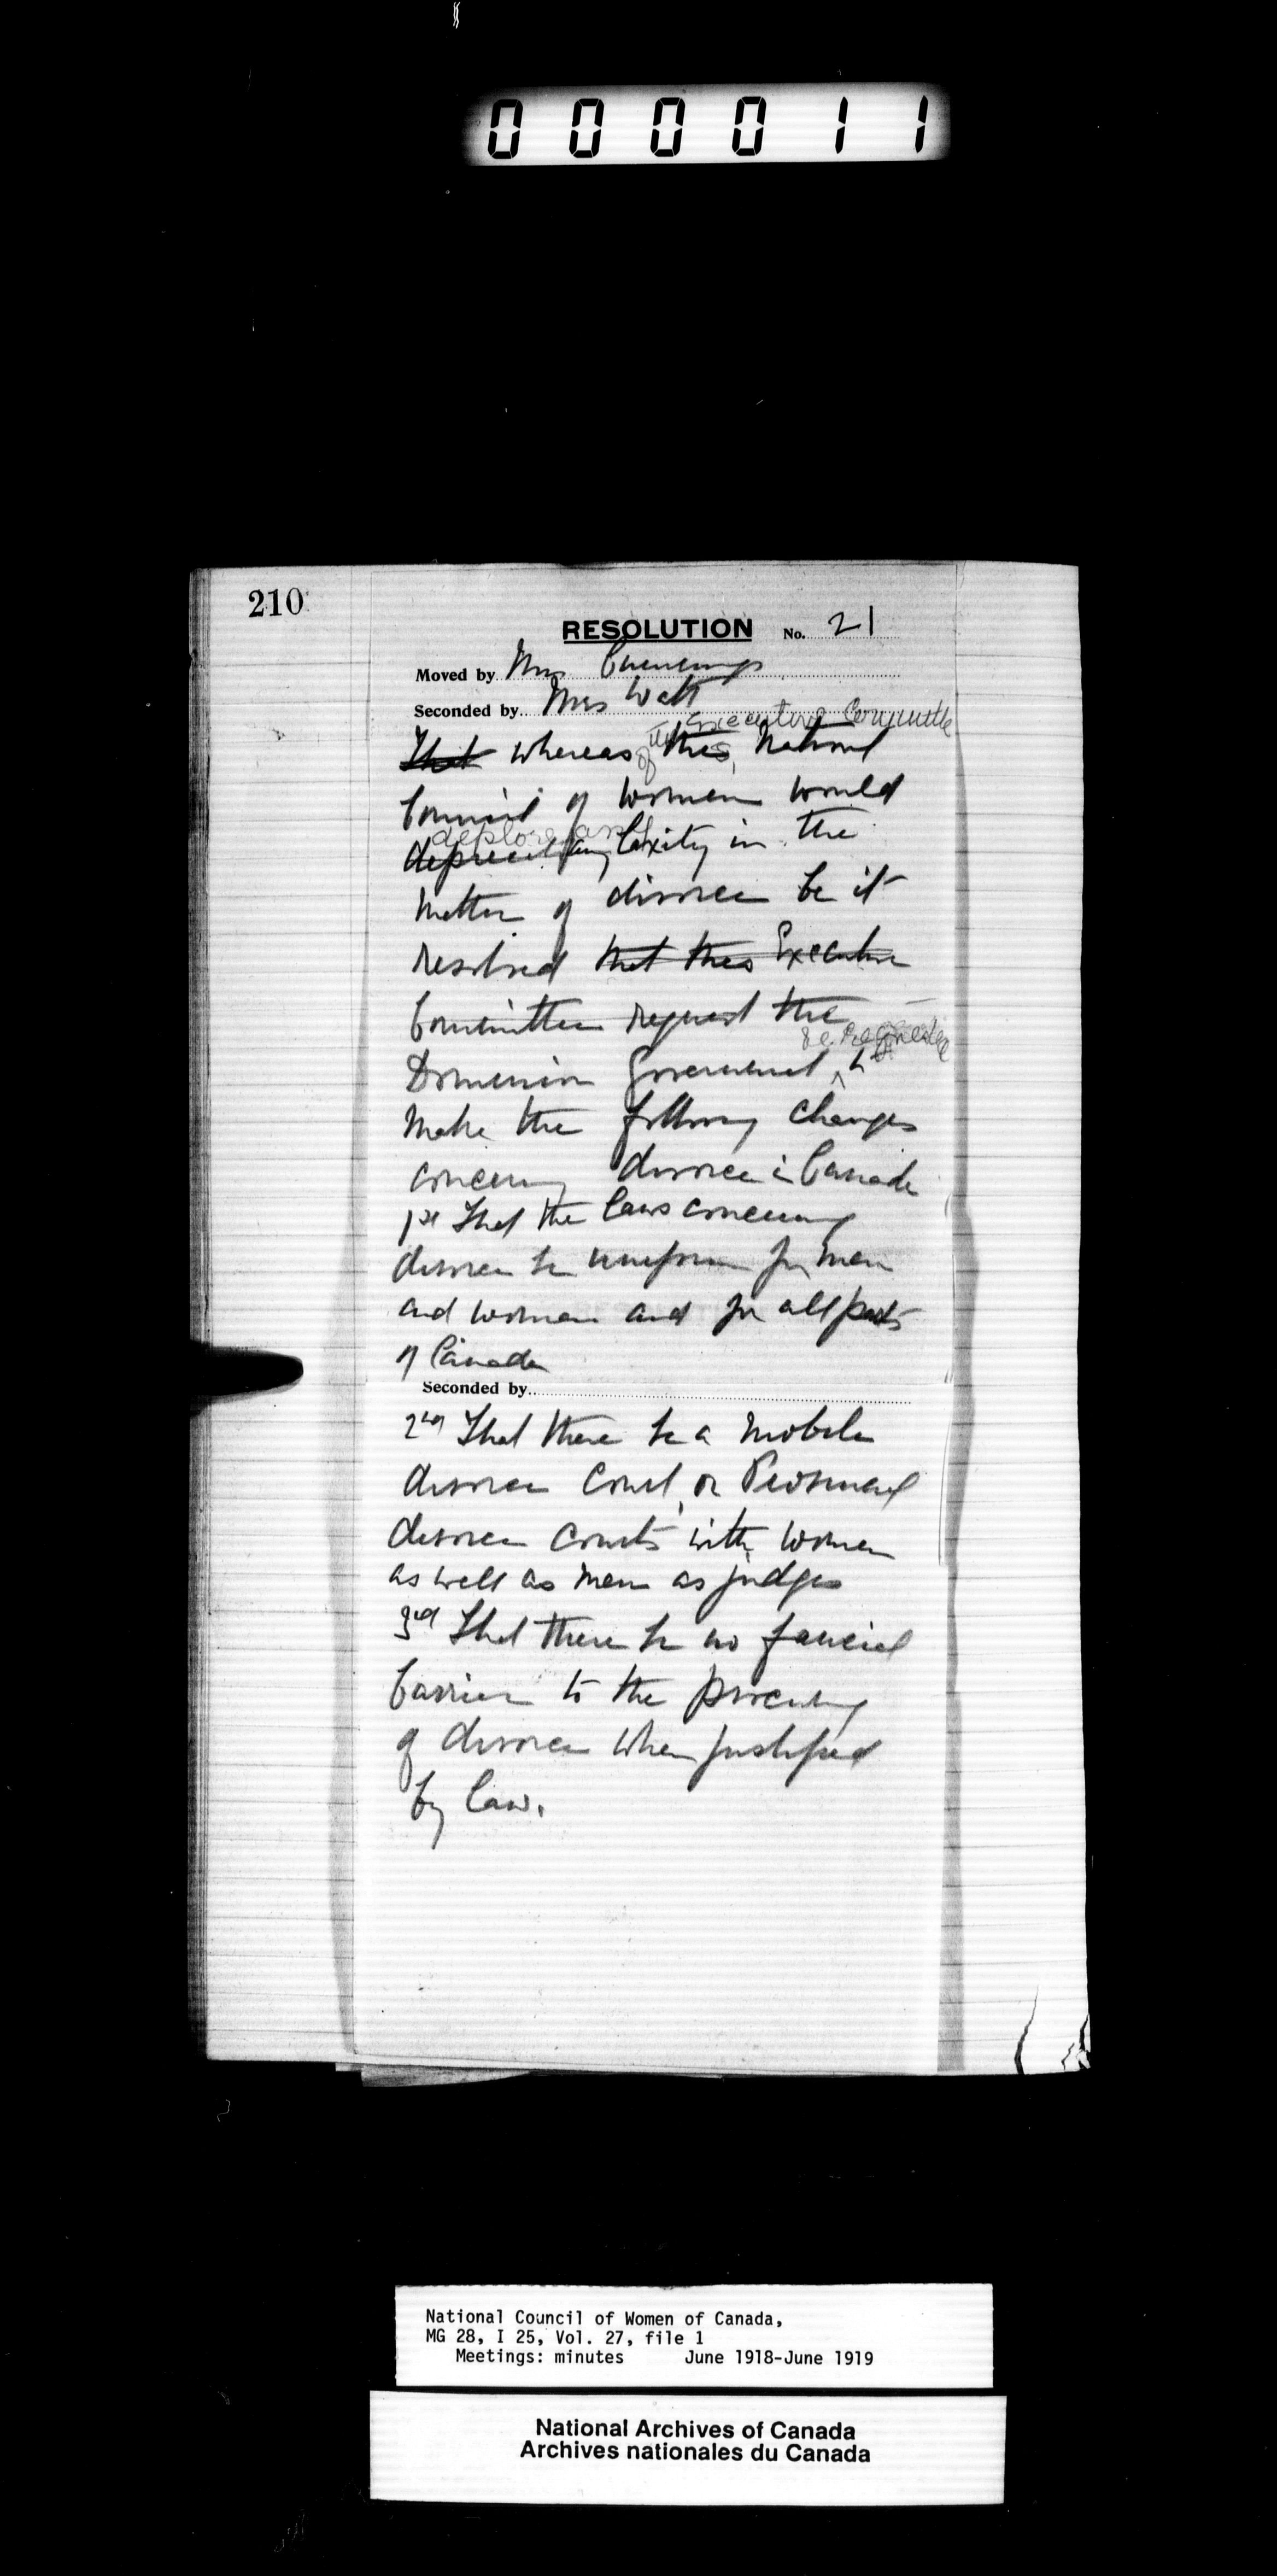 000011
210
RESOLUTION No. 21
Moved by Mrs Cummings
Seconded by Mrs Watt
the Executive Committee
That whereas of this National
Council of Women would
deplore any
deprecate any laxity in the
matter of divorce be it
resolved that this Executive
Committee request the
be requested
Dominion Government to
make the following changes
concerning divorce in Canada
1st That the laws concerning
divorce be uniform for men
and women and for all parts
of Canada
Seconded by
2nd That there be a mobile
divorce court, or Provincial
divorce courts with women
as well as men as judges
3rd That there be no financial
barrier to the procuring
of divorce when justified
by law.
National Council of Women of Canada,
MG 28, I 25, Vol. 27, file 1
Meetings: minutes June 1918-June 1919
National Archives of Canada
Archives nationales du Canada